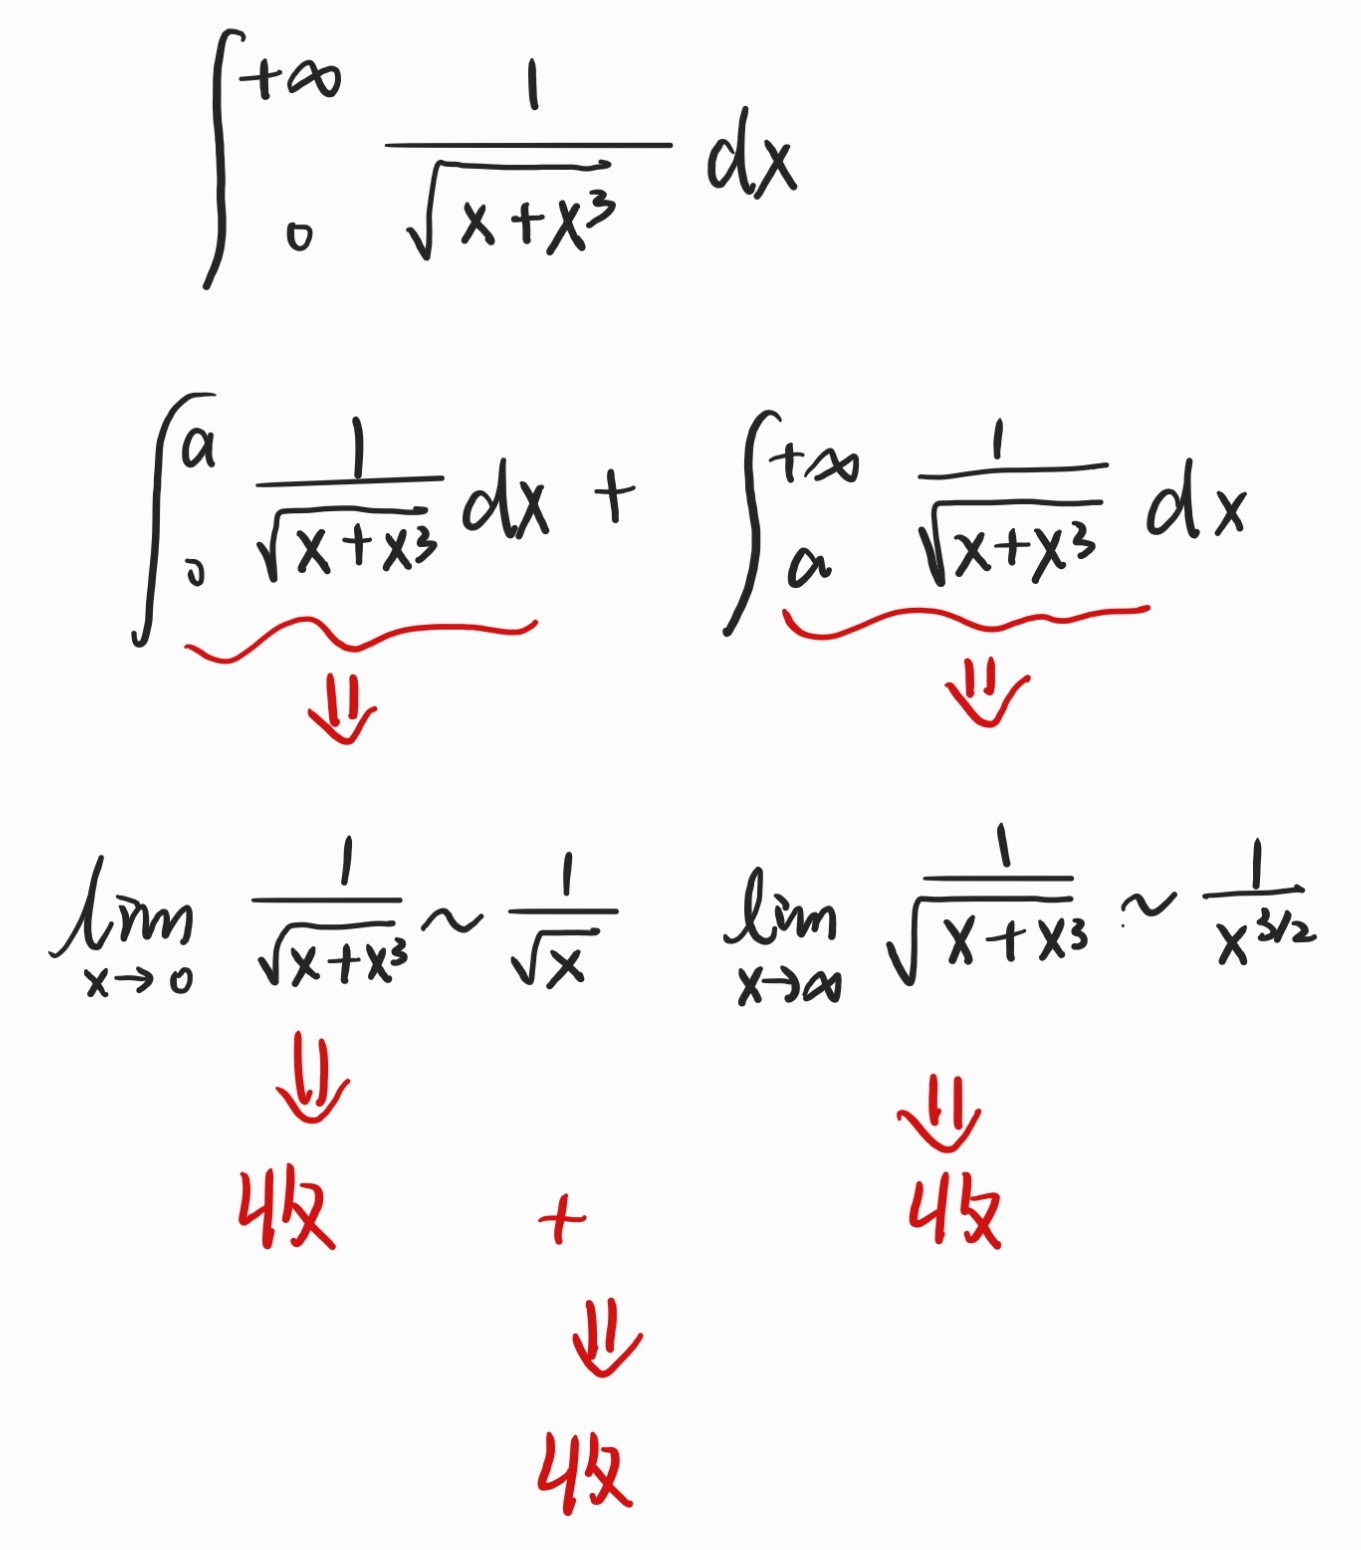 ∫₀^{+∞} 1/√(x+x³) dx
∫₀^a 1/√(x+x³) dx + ∫ₐ^{+∞} 1/√(x+x³) dx
⇓ ⇓
lim_{x→0} 1/√(x+x³) ~ 1/√x lim_{x→∞} 1/√(x+x³) ~ 1/x^{3/2}
⇓ ⇓
收 + 收
⇓
收